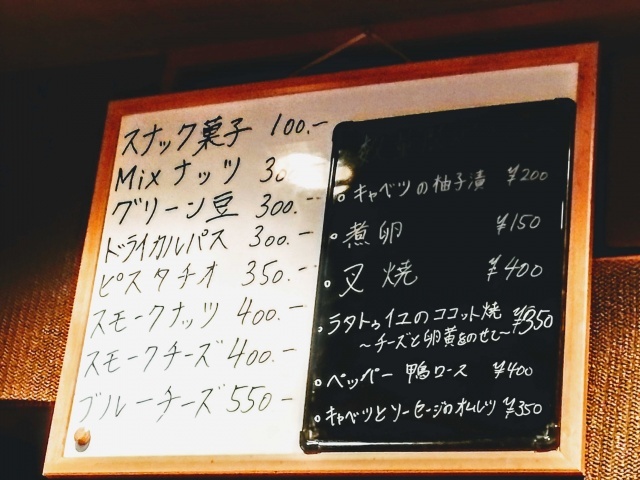 スナック菓子 100.-
Mixナッツ 30
グリーン豆 300.-
ドライカルパス 300.-
ピスタチオ 350.-
スモークナッツ 400.-
スモークチーズ 400.-
ブルーチーズ 550-
・キャベツの柚子漬 ¥200
・煮卵 ¥150
・叉焼 ¥400
・ラタトゥイユのココット焼 ¥350
～チーズと卵黄をのせて～
・ペッパー鴨ロース ¥400
・キャベツとソーセージのオムレツ ¥350